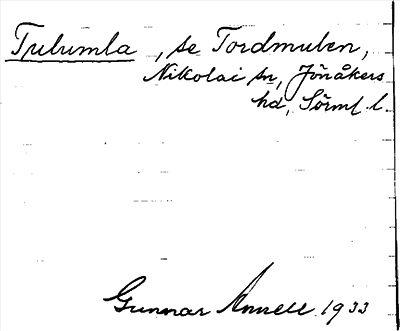 Trulumla, se Tordmulen,
Nikolai sn, Jönåkers
hd, Sörml. l.
Gunnar Annell 1933